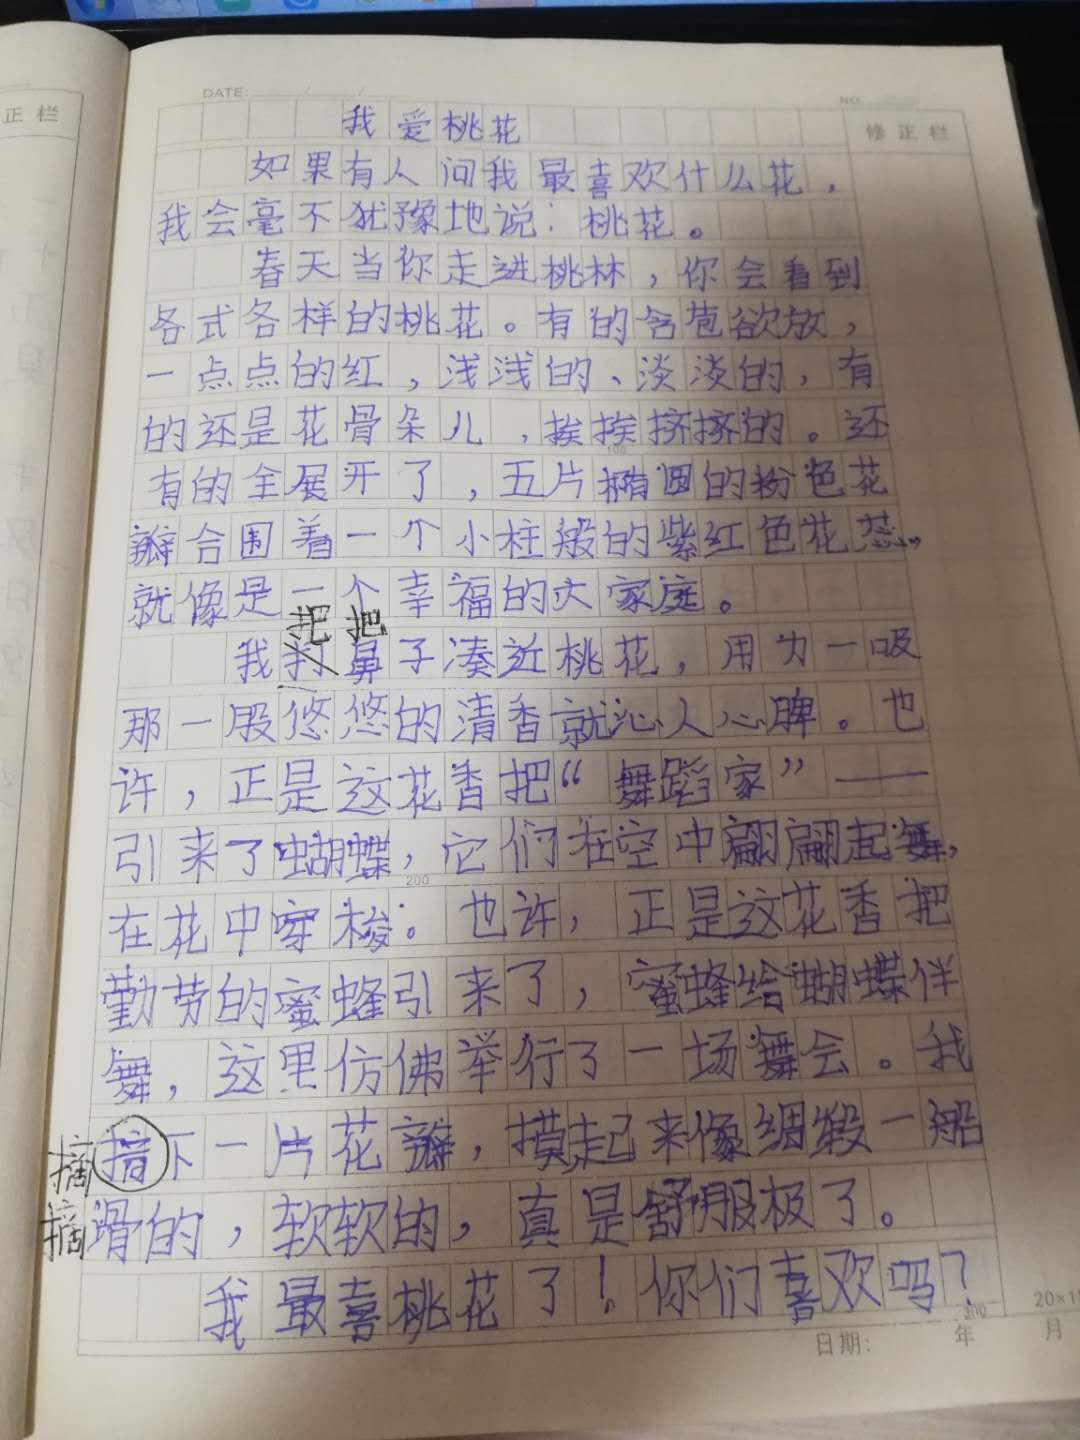 DATE: / /
NO.
正栏
修正栏
我爱桃花
如果有人问我最喜欢什么花，
我会毫不犹豫地说：桃花。
春天当你走进桃林，你会看到
各式各样的桃花。有的含苞欲放，
一点点的红，浅浅的、淡淡的，有
的还是花骨朵儿，挨挨挤挤的。还
100
有的全展开了，五片椭圆的粉色花
瓣合围着一个小柱般的紫红色花蕊，
就像是一个幸福的大家庭。
把 把
我 鼻子凑近桃花，用力一吸
那一股悠悠的清香就沁人心脾。也
许，正是这花香把“舞蹈家”——
引来了蝴蝶，它们在空中翩翩起舞，
200
在花中穿梭。也许，正是这花香把
勤劳的蜜蜂引来了，蜜蜂给蝴蝶伴
舞，这里仿佛举行了一场舞会。我
摘
下一片花瓣，摸起来像绸缎一船
摘
滑的，软软的，真是舒服极了。
我最喜桃花了！你们喜欢吗？
300
20×15
日期： 年 月